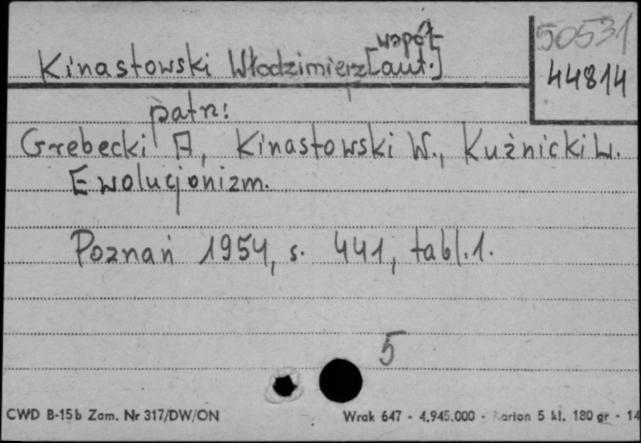 50531
Kinastowski Włodzimierz [współaut.]
44814
patrz:
Grebecki A, Kinastowski W., Kuźnicki L.
Ewolucjonizm.
Poznań 1954, s. 441, tabl. 1.
5
CWD B-15b Zam. Nr 317/DW/ON
Wrak 647 - 4.945.000 - Karton 5 kl. 180 gr - 14